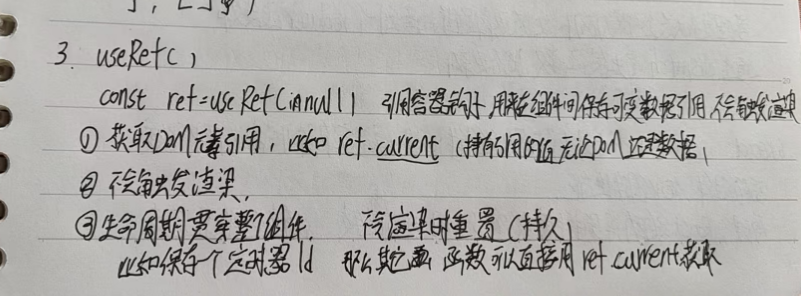 3. useRef(),
const ref=useRef(null) 引用容器钩子,用来在组件间保存可变数据引用 不会触发渲染
① 获取DOM元素引用, 比如 ref.current (持有引用的值 无论DOM还是数据)
② 不会触发渲染,
③ 生命周期贯穿整个组件, 不会渲染时重置(持久)
比如保存一个定时器Id 那么其它 函数可以直接用ref.current获取